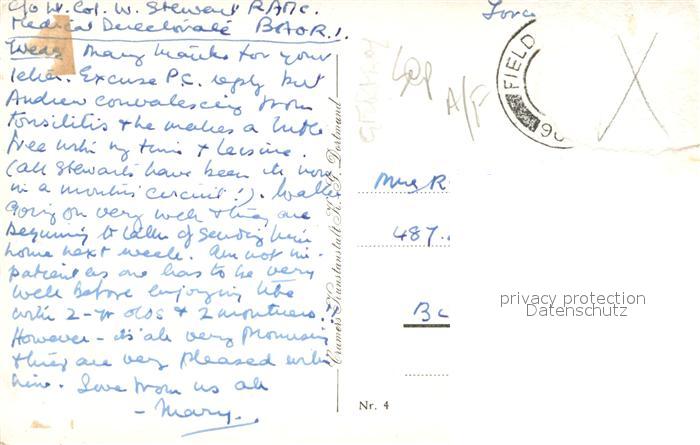 c/o Lt. Col. W. Stewart RAMC.
Medical Directorate BAOR.1.
Many thanks for your
letter. Excuse P.C. reply but
Andrew convalescing from
tonsilitis & he makes a little
free with my time & leisure.
(all Stewarts have been ill now
in a months circuit!).
going on very well & they are
beginning to talk of sending him
home next week. Am not im-
patient as one has to be very
well before enjoying life
with 2-yr olds & 2 monthers.!!
However - its all very promising
& they are very pleased with
him. Love from us all
- Mary.
Cramers Kunstanstalt K. G. Dortmund
Nr. 4
FIELD
A/F
Mrs R
487
privacy protection
Datenschutz